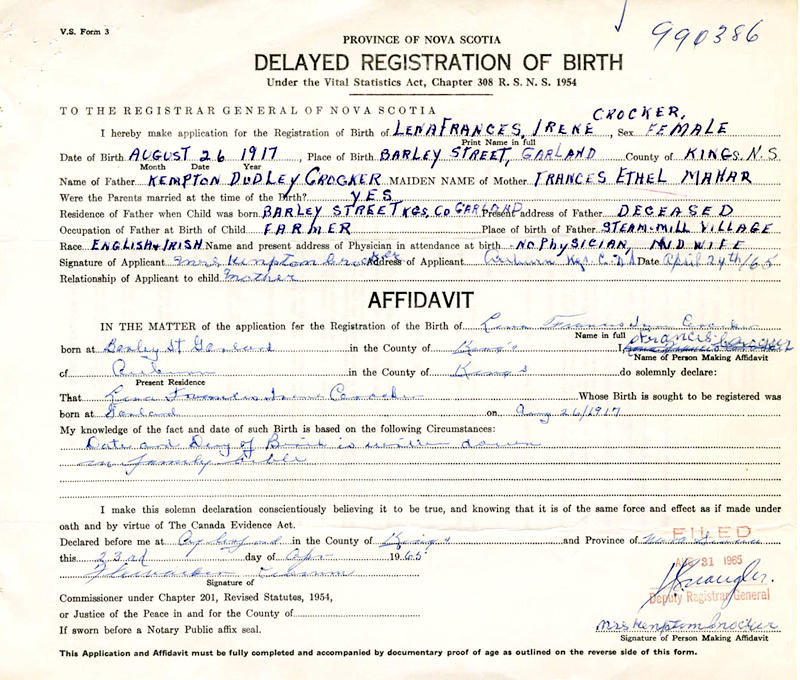 V.S. Form 3
990386
PROVINCE OF NOVA SCOTIA
DELAYED REGISTRATION OF BIRTH
Under the Vital Statistics Act, Chapter 308 R. S. N. S. 1954
TO THE REGISTRAR GENERAL OF NOVA SCOTIA
I hereby make application for the Registration of Birth of LENA FRANCES, IRENE CROCKER, Sex FEMALE
Print Name in full
Date of Birth AUGUST 26 1917, Place of Birth BARLEY STREET, GARLAND County of KINGS. N.S
Month Date Year
Name of Father KEMPTON DUDLEY CROCKER MAIDEN NAME of Mother FRANCES ETHEL MAHAR
Were the Parents married at the time of the Birth? YES
Residence of Father when Child was born BARLEY STREET KGS. CO GARLAND Present address of Father DECEASED
Occupation of Father at Birth of Child FARMER Place of birth of Father STEAM-MILL VILLAGE
Race ENGLISH & IRISH Name and present address of Physician in attendance at birth NO PHYSICIAN, MIDWIFE
Signature of Applicant Mrs Kempton Crocker Address of Applicant Auburn Kgs. Co. N.S Date April 24th/65
Relationship of Applicant to child Mother
AFFIDAVIT
IN THE MATTER of the application for the Registration of the Birth of Lena Frances Irene Crocker
Name in full
born at Barley St Garland in the County of King's I Frances Crocker
Name of Person Making Affidavit
of Auburn in the County of King's do solemnly declare:
Present Residence
That Lena Frances Irene Crocker Whose Birth is sought to be registered was
born at Garland on Aug 26/1917
My knowledge of the fact and date of such Birth is based on the following Circumstances:
Date and Day of Birth is written down
in family bible
I make this solemn declaration conscientiously believing it to be true, and knowing that it is of the same force and effect as if made under
oath and by virtue of The Canada Evidence Act.
Declared before me at Aylesford in the County of King's and Province of Nova Scotia
FILED
this 23rd day of Apr 1965
AUG 31 1965
Signature of
Deputy Registrar General
Commissioner under Chapter 201, Revised Statutes, 1954,
or Justice of the Peace in and for the County of
Mrs Kempton Crocker
If sworn before a Notary Public affix seal.
Signature of Person Making Affidavit
This Application and Affidavit must be fully completed and accompanied by documentary proof of age as outlined on the reverse side of this form.